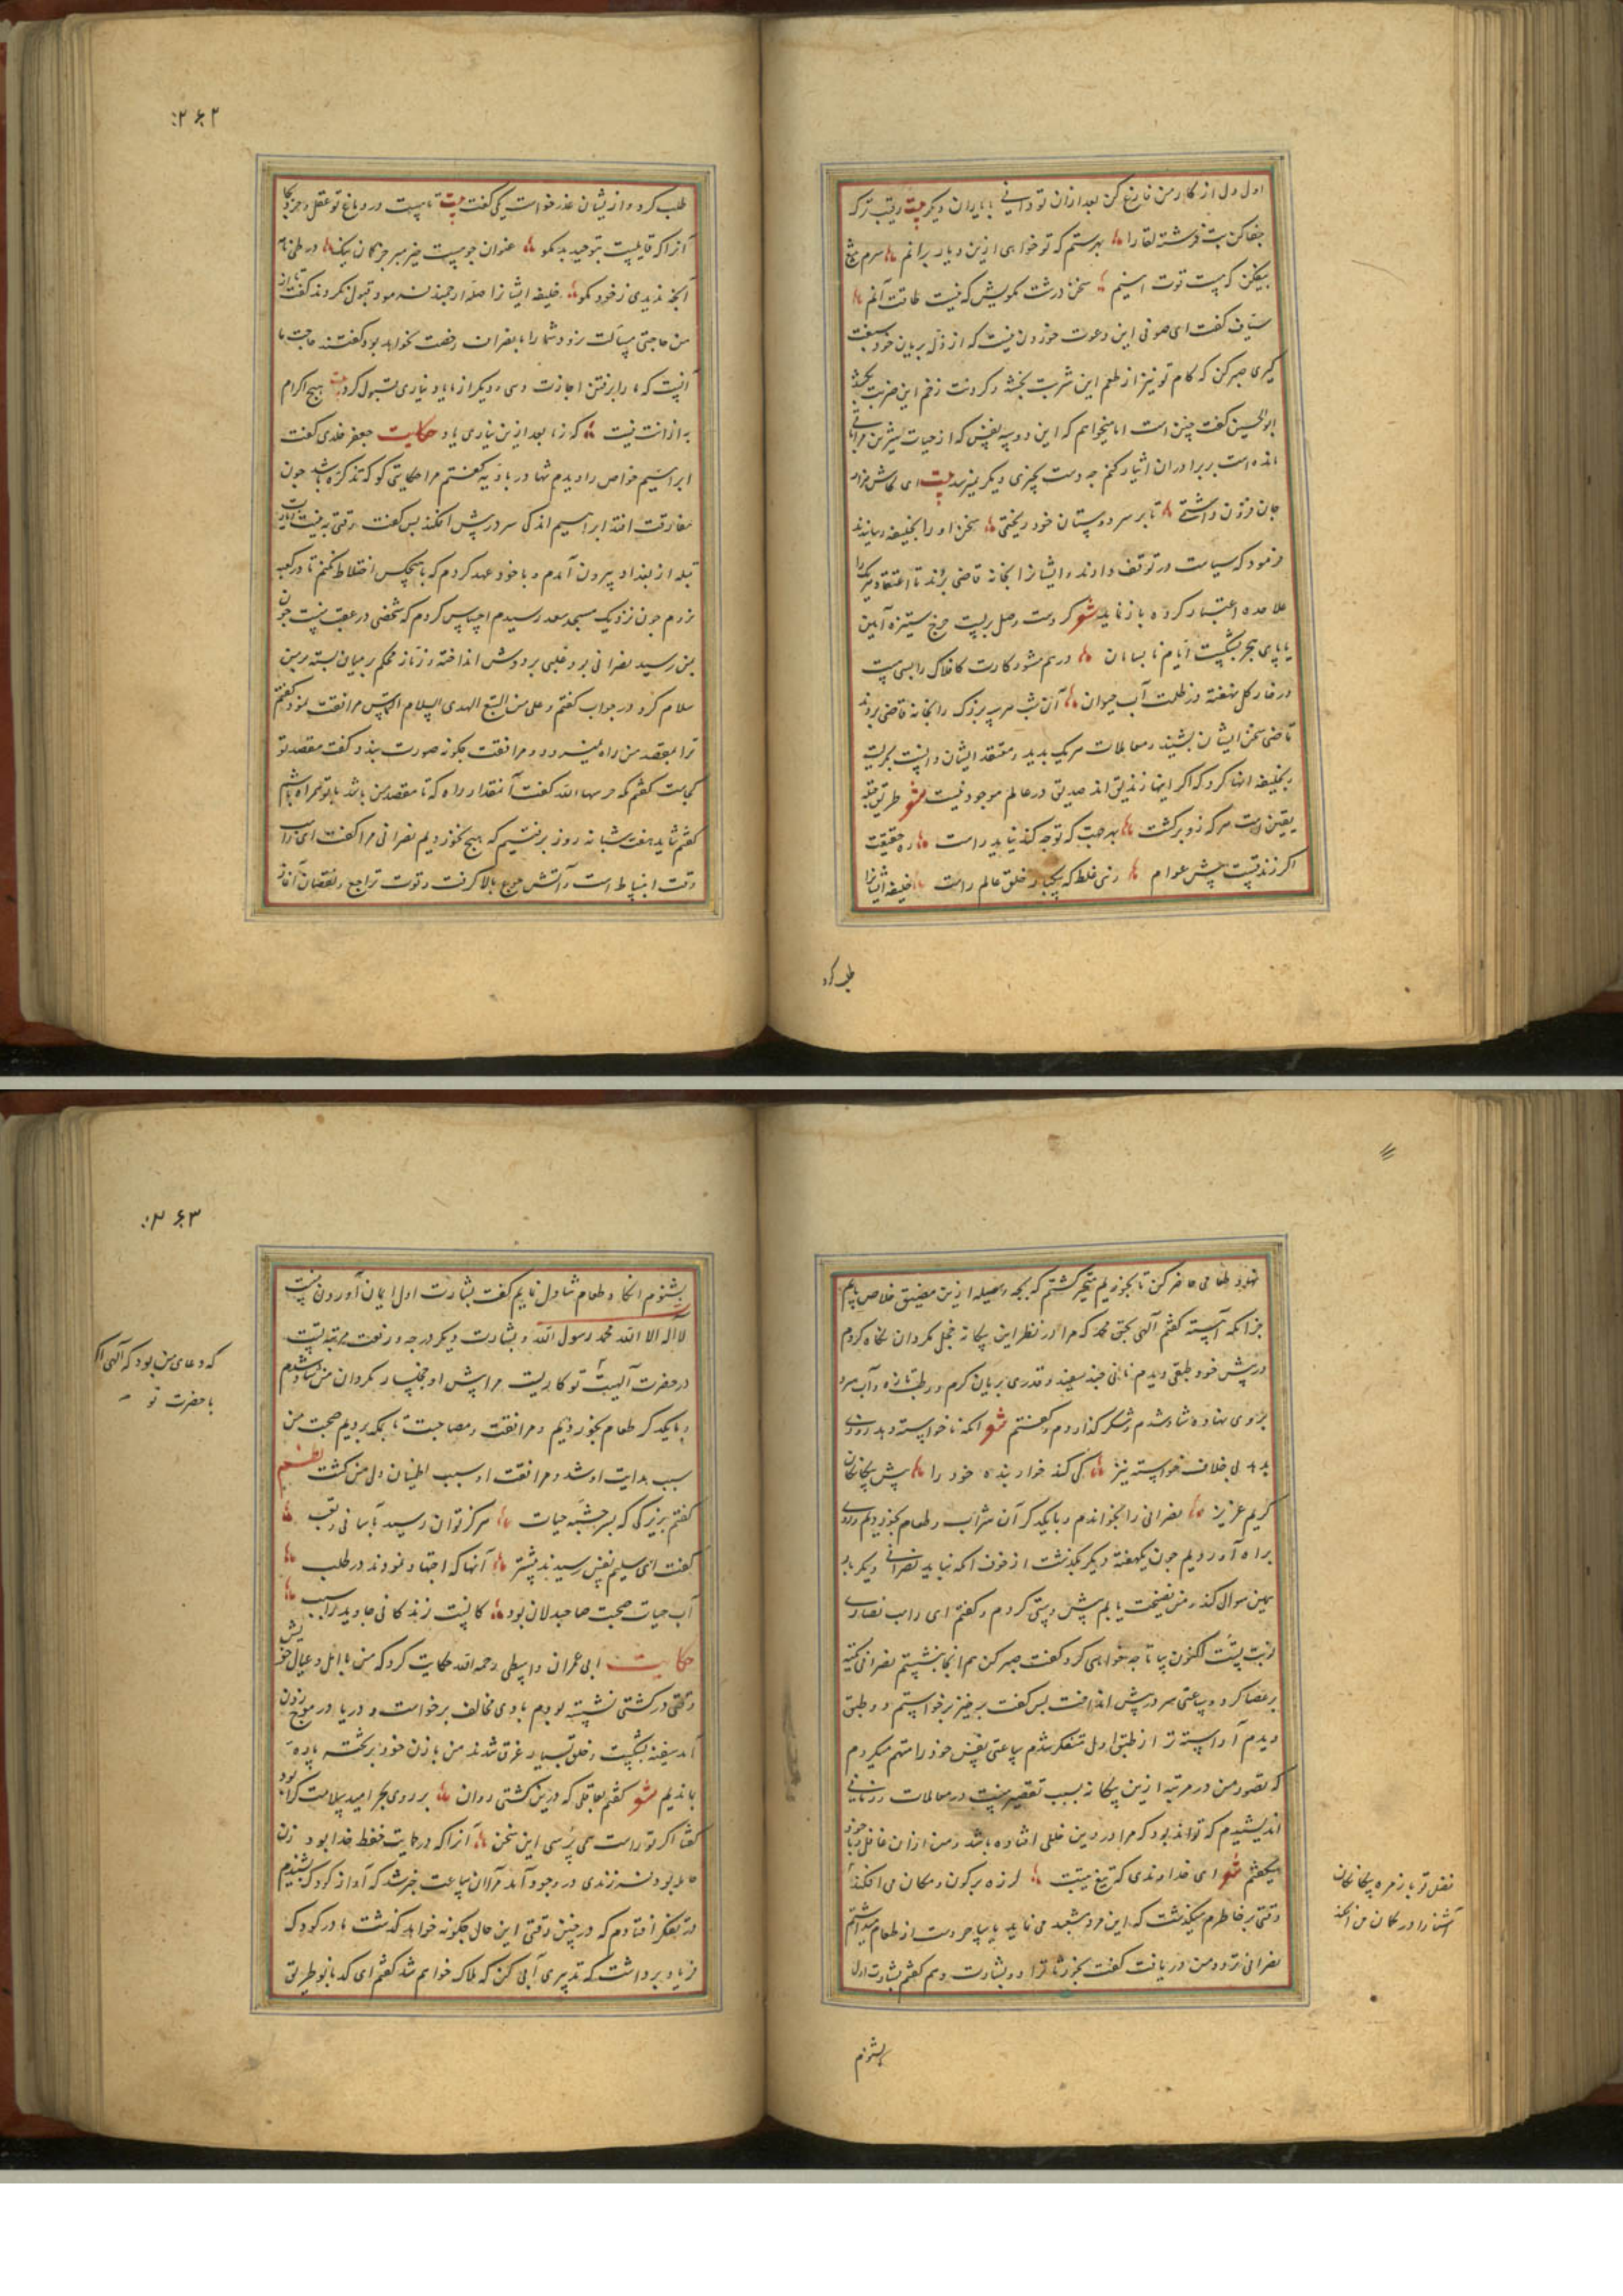 اول دل از کار من فارغ کن بعد ازان تو دانی با یاران دیگر بیت رقیب ترک
جفا کن بت فرشته لقا را بهر ستم که تو خواهی ازین دیار برانم سرم
بیفکن که هست قوت اینیم سخن درشت مگویش که نیست طاقت آنم
سیاف گفت ای صوفی این دعوت خوردن نیست که از ذله بریان خود سبقت
گیری صبر کن که کام تو نیز از طعم این شربت بخشد و گردنت زخم این ضربت بچشد
ابوالحسین گفت چنین است اما میخواهم که این دو سه نفس که از حیات شیرین مرا باقی
مانده است بر برادران ایثار کنم چه دست بچیزی دیگر نمیرسد بیت ای کاش هزار
جان فزون داشتی تا بر سر دوستان خود ریختی سخن او را بخلیفه رسانیدند
فرمود که سیاست در توقف دارند و ایشانرا بخانه قاضی برند تا اعتقاد هر یک را
ملاحده اعتبار کرده باز نماید شعر گر دست وصل بربست چرخ ستیزه آیین
یا پای هجر بشکست ایام نابسامان درهم مشو ز کارت کافلاک را بسی هست
در خار گل نهفته در ظلمت آب حیوان آن شب هر سه بزرگ را بخانه قاضی بردند
قاضی سخن ایشان بشنید و معاملات هر یک بدید و معتقد ایشان دانست بگریست
بخلیفه انها کرد که اگر اینها زندیق اند صدیق در عالم موجود نیست شعر طریق
یقین است هر که زو برگشت بهر جهت که توجه کند نیاید راست ره حقیقت
اگر زندقیست پیش عوام زهی غلط که بیکبار خلق عالم راست خلیفه ایشانرا
طلب کرد
۲۶۲
طلب کرد و ازیشان عذر خواست یکی گفت بیت تا هست در دماغ تو عقل و خرد بجا
آنرا که قابلیست بتوحید بد مگو عنوان چو هست خیر مبر جز گمان نیک در طی نامه
آنچه ندیدی ز خود مگو خلیفه ایشانرا صله ارجمند فرمود قبول نکردند گفت
من حاجتی مسالت رود و شما را با بصران رخصت نخواهد بود گفتند حاجت ما
آنست که ما را برفتن اجازت دهی و دیگر از ما یاد نیاری قبول کرد بیت هیچ اکرام
به ازانت نیست که ز ما بعد ازین نیاری یاد حکایت جعفر خلدی گفت
ابراهیم خواص را دیدم تنها در بادیه گفتم مرا حکایتی گو که تذکره باشد چون
مفارقت افتد ابراهیم اندکی سر در پیش افکند پس گفت وقتی به نیت زیارت
قبله از بغداد بیرون آمدم و با خود عهد کردم که با هیچکس اختلاط نکنم تا در کعبه
نزدم چون نزدیک مسجد سعد رسیدم احساس کردم که شخصی در عقب هست چون
بمن رسید نصرانی بود غلبی بر دوش انداخته و زنار محکم بر میان بسته بر من
سلام کرد در جواب گفتم و علی من اتبع الهدی السلام التماس مرافقت نمود گفتم
ترا بمقصد من راه نمیرود و مرافقت چگونه صورت بندد گفت مقصد تو
کجاست گفتم مکه حرسها الله گفت آنقدار راه که تا مقصد من باشد با تو همراه باشم
گفتم شاید هفت شبانه روز برفتیم که هیچ نخوردیم نصرانی مرا گفت ای راهب
وقت انبساط است و آتش جوع بالا گرفت و قوت تراجع و نقصان آغاز
نهاد طعامی حاضر کن تا بخوریم متحیر گشتم که بچه وسیله ازین مضیق خلاص یابم
جز آنکه آهسته گفتم آلهی بحق محمد که مرا در نظر این بیگانه خجل مگردان نگاه کردم
در پیش خود طبقی دیدم نانی چند سفید و قدری بریان گرم و رطب تازه و آب سرد
بر وی نهاده شاد شدم و شکر گذاردم و گفتم شعر آنکه ناخواسته دهد روزی
بدهد بی خلاف خواسته نیز کی کند خوار بنده خود را پیش بیگانگان
کریم عزیز نصرانی را بخواندم و با یکدیگر آن شراب و طعام بخوردیم و روی
براه آوردیم چون یکهفته دیگر بگذشت از خوف آنکه نباید نصرانی دیگر بار
همین سوال کند و من فضیحت یابم پیش دستی کردم و گفتم ای راهب نصاری
نوبت تست اکنون بیا تا چه خواهی کرد گفت صبر کن هم آنجا بنشستیم نصرانی تکیه
بر عصا کرد و ساعتی سر در پیش انداخت پس گفت برخیز برخواستم دو طبق
دیدم آراسته تر از طبق اول متفکر شدم ساعتی نفس خود را متهم میکردم
که قصور من در مرتبه ازین بیگانه بسبب تقصیر منست در معاملات ربانی
اندیشیدم که تواند بود که مرا در دین خللی افتاده باشد و من ازان غافل و با خود
میگفتم شعر ای خداوندی که تیغ هیبتت لرزه بر کون و مکان می افکند
وقتی بر خاطرم میگذشت که این مرد شعبده می نماید یا ساحر دست از طعام میداشتم
نصرانی تردد من دریافت گفت بخور تا ترا دو بشارت دهم گفتم بشارت اول
بشنوم
نفس تر باز مره بیگانگان
آشنا را در گمان می افکند
۲۶۳
بشنوم آنگاه طعام تناول نمایم گفت بشارت اول ایمان آوردن منست
لا اله الا الله محمد رسول الله و بشارت دیگر درجه و رفعت مرتبه تست
در حضرت آلهیت
که دعای من بود که آلهی اگر
با حضرت تو
تو کاریست مرا پیش او خجلسار مگردان من شاد شدم
و با یکدیگر طعام بخوردیم و مرافقت و مصاحبت تا بمکه بردیم صحبت من
سبب هدایت او شد و مرافقت او سبب اطمینان دل من گشت نظم
گفتم بزیرکی که بسرچشمه حیات هرگز توان رسید بآسانی و تعب
گفت ای سلیم نفس رسیدند پیشتر آنها که اجتهاد نمودند در طلب
آب حیات صحبت صاحبدلان بود کانست زندگانی جاوید را سبب
حکایت ابی عمران واسطی رحمه الله حکایت کرد که من با اهل و عیال خویش
وقتی در کشتی نشسته بودم بادی مخالف برخواست و دریا در موج زدن
آمد سفینه بشکست و خلق بسیار غرق شدند من با زن خود بر تخته پاره
بماندیم شعر گفتم بعاقلی که درین کشتی روان بر روی بحر امید سلامت کرا بود
گفتا اگر تو راست می پرسی این سخن آنرا که در حمایت حفظ خدا بود زن
حامله بود فرزندی در وجود آمد در آن ساعت خبر شد که آواز کودک شنیدم
در تفکر افتادم که در چنین وقتی این حال چگونه خواهد گذشت مادر کودک
فریاد برداشت که تدبیری آبی کن که هلاک خواهم شد گفتم ای کدبانو طریق